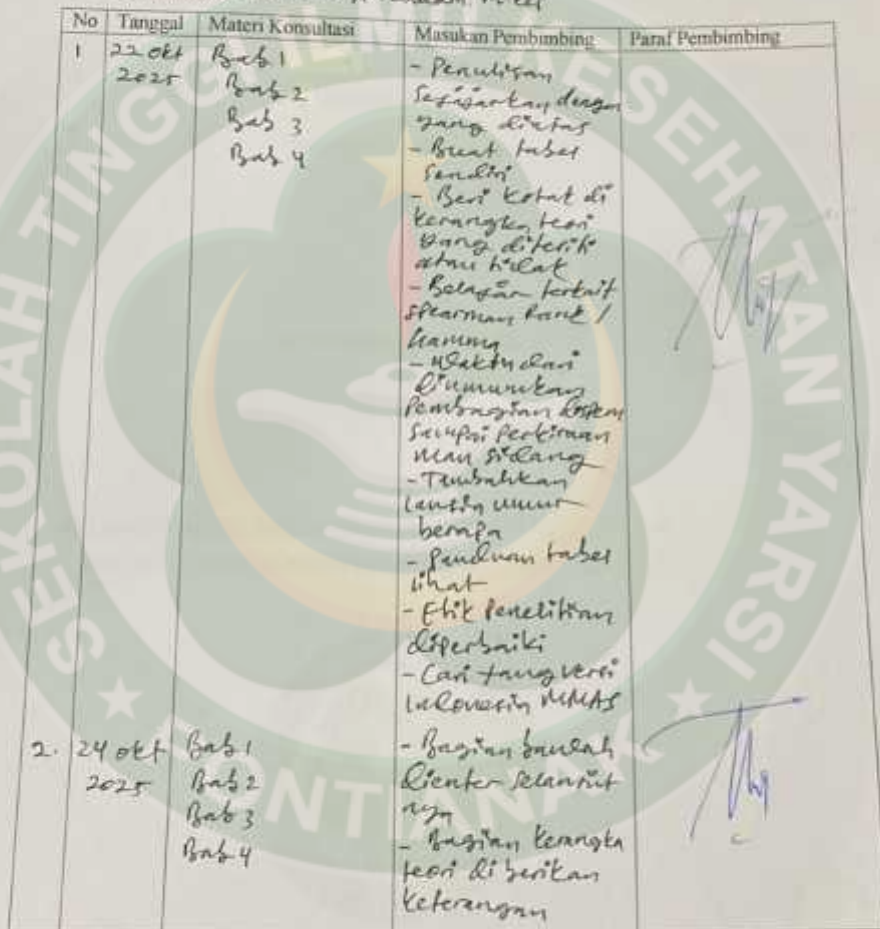 No Tanggal Materi Konsultasi Masukan Pembimbing Paraf Pembimbing
1 22 okt 2025
Bab 1
Bab 2
Bab 3
Bab 4
- Penulisan
Sejajarkan dengan
yang diatas
- Buat tabel
Sendiri
- Beri kotak di
kerangka teori
yang diteliti
atau tidak
- Belajar terkait
Spearman Rank /
- Waktu dari
diumumkan
Pembagian dospem
Sampai perkiraan
mau sidang
- Tambahkan
lansia umur
berapa
- Panduan tabel
lihat
- Etik Penelitian
diperbaiki
- Cari yang versi
Indonesia MMAS
2. 24 okt 2025
Bab 1
Bab 2
Bab 3
Bab 4
- Bagian bawah
dienter selanjut
nya
- Bagian kerangka
teori di berikan
keterangan
SEKOLAH TINGGI ILMU KESEHATAN YARSI
PONTIANAK